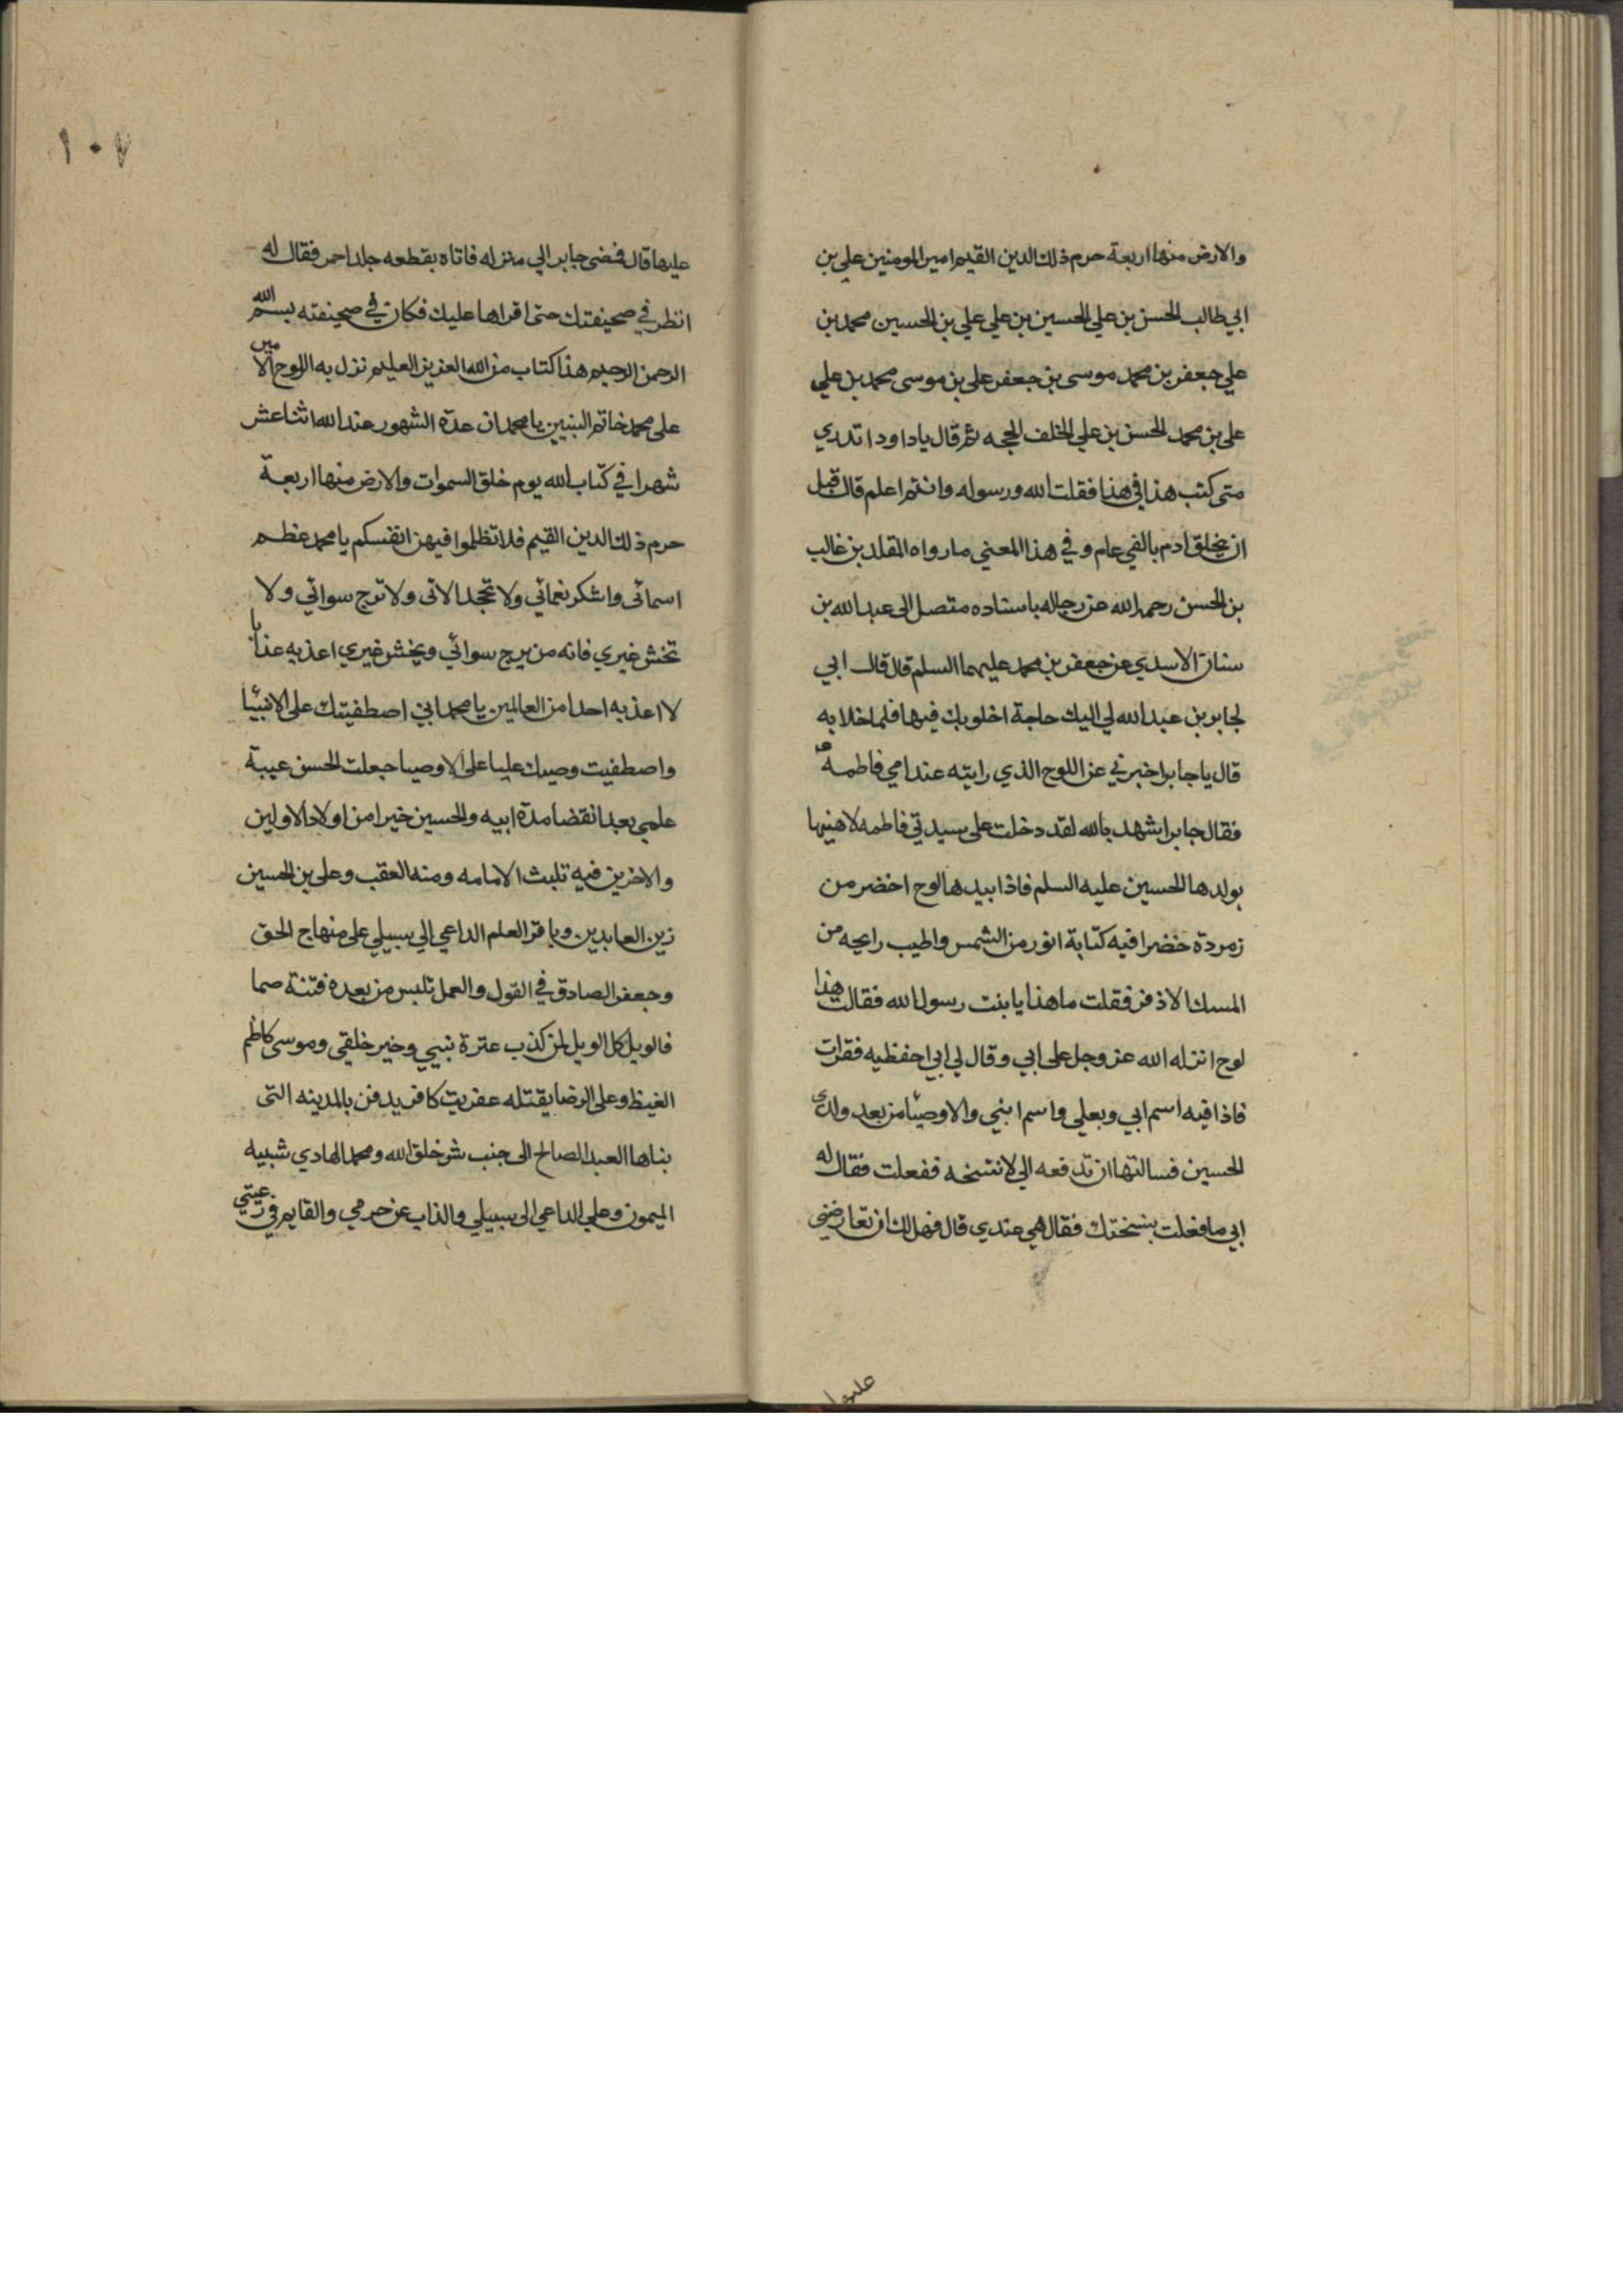 والارض منها اربعة حرم ذلك الدين القيم امير المومنين علي بن
ابي طالب الحسن بن علي الحسين بن علي علي بن الحسين محمد بن
علي جعفر بن محمد موسى بن جعفر على بن موسى محمد بن علي
على بن محمد الحسن بن علي الخلف الحجه ثم قال ياداود اتدري
متى كتب هذا في هذا فقلت الله ورسوله وانتم اعلم قال قبل
ان يخلق ادم بالفي عام وفي هذا المعني مارواه المقلد بن غالب
بن الحسن رحمه الله عن رجاله باسناده متصل الى عبد الله بن
سنان الاسدي عن جعفر بن محمد عليهما السلم قال قال ابي
لجابر بن عبد الله لي اليك حاجة اخلو بك فيها فلما خلا به
قال ياجابر اخبرني عن اللوح الذي رايته عند امي فاطمة
فقال جابر اشهد بالله لقد دخلت على سيدتي فاطمه لاهنيها
بولدها الحسين عليه السلم فاذا بيدها لوح اخضر من
زمردة خضرا فيه كتابة انور من الشمس واطيب رايحه من
المسك الاذفر فقلت ماهذا يابنت رسول الله فقالت هذا
لوح انزله الله عز وجل على ابي وقال لي ابي احفظيه فقرات
فاذا فيه اسم ابي وبعلي واسم ابني والاوصيا من بعد ولدي
الحسين فسالتها ان تدفعه الي لانتسخه ففعلت فقال له
ابي مافعلت بنسختك فقال هي عندي قال فهل لك ان تعارضني
عليها
١٠٧
عليها قال فمضى جابر الي منزله فاتاه بقطعه جلد احمر فقال له
انظر في صحيفتك حتى اقراها عليك فكان في صحيفته بسم الله
الرحمن الرحيم هذا كتاب من الله العزيز العليم نزل به الروح الامين
على محمد خاتم النبيين يامحمد ان عدة الشهور عند الله اثنا عشر
شهرا في كتاب الله يوم خلق السموات والارض منها اربعة
حرم ذلك الدين القيم فلا تظلموا فيهن انفسكم يامحمد عظم
اسمائى واشكر نعمائي ولا تجحد الائى ولا ترج سوائي ولا
تخش غيري فانه من يرج سوائي ويخش غيري اعذبه عذابا
لا اعذبه احدا من العالمين يامحمد اني اصطفيتك على الانبيا
واصطفيت وصيك عليا على الاوصيا جعلت الحسن عيبة
علمي بعد انقضا مدة ابيه والحسين خير امن اولاد الاولين
والاخرين فيه تلبث الامامه ومنه العقب وعلي بن الحسين
زين العابدين وباقر العلم الداعي الي سبيلي على منهاج الحق
وجعفر الصادق في القول والعمل تلبس من بعده فتنة صما
فالويل كل الويل لمن كذب عترة نبيي وخير خلقي وموسى كاظم
الغيظ وعلى الرضا يقتله عفريت كافر يدفن بالمدينه التى
بناها العبد الصالح الى جنب شر خلق الله ومحمد الهادي شبيه
الميمون وعلي الداعي الى سبيلي والذاب عن حرمي والقايم في رعيتي